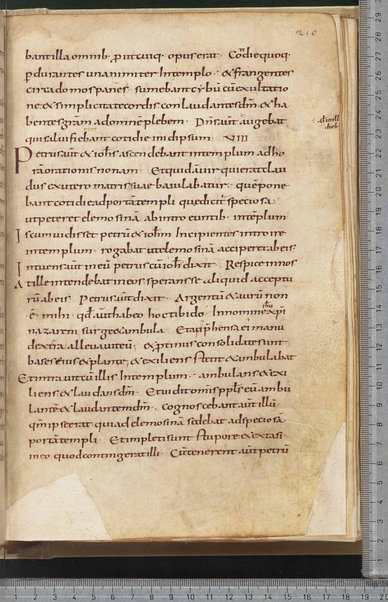 210
bant illa omnib; ꝓut cuiq; opus erat · Cotidie quoq;
ꝑdurantes unanimiter In templo · & frangentes
circa domos panē · sumebant cybū cū exultatio
ne & simplicitate cordis conlaudantes dm̄ & ha
bentes grām ad omnē plebem · Dn̄s aut̄ augebat
qui salui fierent cotidie in id ipsum · XIII
Petrus aut̄ & ioh̄s ascendebant in templum ad ho
rā orationis nonam · Et quidā uir qui erat clau
dus ex utero matris suae baiulabatur · quē pone
bant cotidie ad portā templi quae dicit̄ speciosa ·
ut peteret elemosinā ab introeuntib; in tēplum
Is cum uidisset petrū & ioh̄m Incipientes introire
in templum · rogabat ut elemosinā acciperet ab eis ·
Intuens aut̄ in eū petrus cū ioh̄ dixit · Respice in nos
At ille intendebat in eos sperans se aliquid acceptu
rū ab eis · Petrus aut̄ dixit · Argentū & aurū non
ē mihi · qd̄ aut̄ habeo hoc tibi do · In nomine ihū xp̄i
nazareni surge & ambula · Et adp̄hensa ei manu
dextra alleuauit eū · & protinus consolidatae sunt
bases eius & plantae · & exiliens stetit & ambulabat
Et intrauit cū illis In templum · ambulans & exi
liens & laudans dm̄ · Et uidit omnis ppl̄s eū ambu
lantē & laudantem dm̄ · Cognoscebant aut̄ illū
qm̄ ipse erat qui ad elemosinā sedebat ad speciosā
portā templi · Et impleti sunt stupore & extasi
in eo quod contingerat illi · Cū tenerent aut̄ petrū